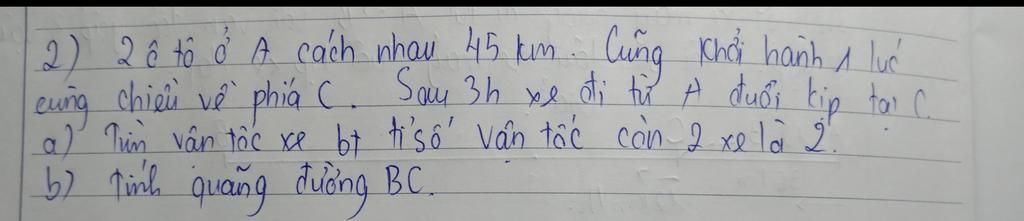 2) 2 ô tô ở A cách nhau 45 km. Cũng khởi hành 1 lúc
cùng chiều về phiá C. Sau 3h xe đi từ A đuổi kịp tại C.
a) Tìm vân tôc xe bt tỉ số vân tốc của 2 xe là 2.
b) tính quãng đường BC.